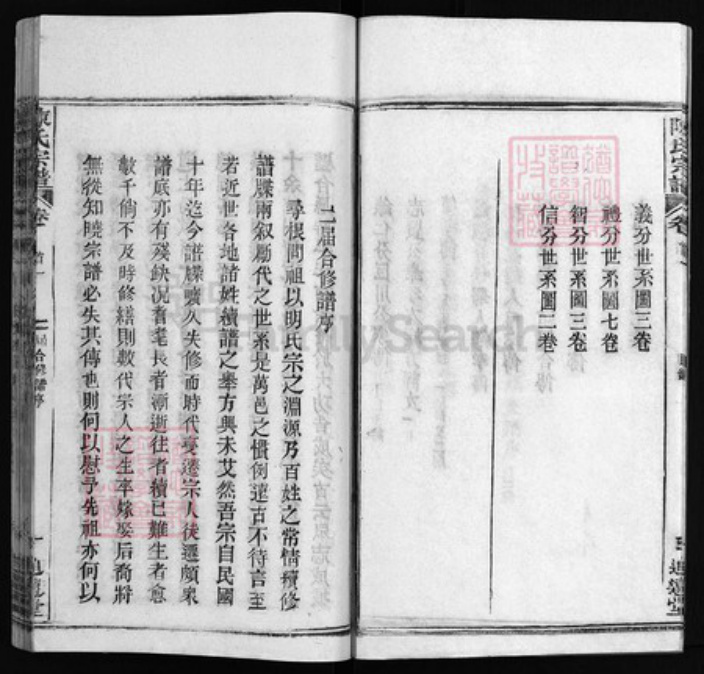 陳氏宗譜
卷首
義分世系圖三卷
禮分世系圖七卷
智分世系圖三卷
信分世系圖二卷
二屆合修譜序
尋根問祖以明氏宗之淵源乃百姓之常情續修
譜牒兩叙勵代之世系是萬邑之慣例遠古不待言至
若近世各地諸姓續譜之舉方興未艾然吾宗自民國
十年迄今譜牒曠久失修而時代變遷宗人徙遷頗衆
譜底亦有殘缺况耆耄長者漸逝往者續已難生者愈
數千倘不及時修繕則數代宗人之生卒嫁娶后裔將
無從知曉宗譜必失其傳也則何以慰予先祖亦何以
陳氏宗譜
卷首一
二屆合修譜序
一
FamilySearch